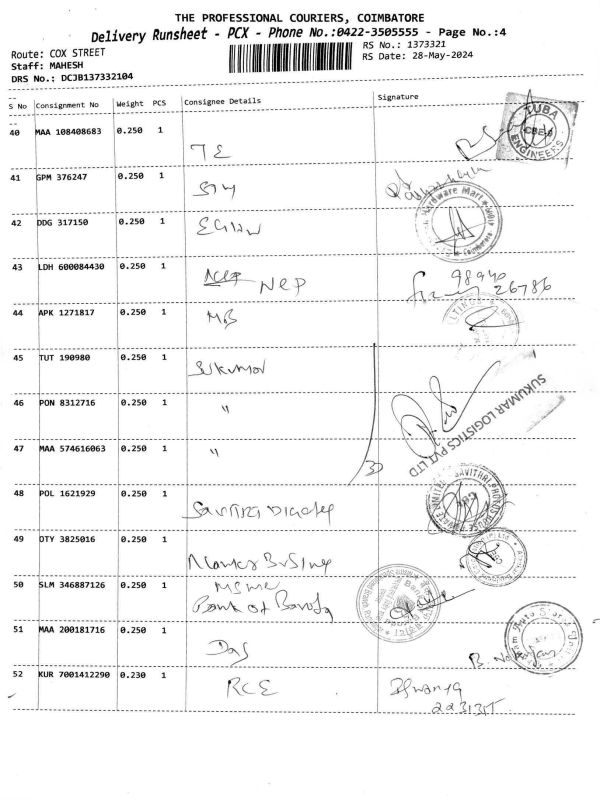 THE PROFESSIONAL COURIERS, COIMBATORE
Delivery Runsheet - PCX - Phone No.:0422-3505555 - Page No.:4
Route: COX STREET
RS No.: 1373321
Staff: MAHESH
RS Date: 28-May-2024
DRS No.: DCJB137332104
S No Consignment No Weight PCS Consignee Details Signature
40 MAA 108408683 0.250 1 TE
TUBA ENGINEERS CBE-6
41 GPM 376247 0.250 1
Hardware Mart
Coimbatore
42 DDG 317150 0.250 1
43 LDH 600084430 0.250 1 NEP
98940
26786
44 APK 1271817 0.250 1 MB
45 TUT 190980 0.250 1 Sukumar
SUKUMAR LOGISTICS PVT LTD
46 PON 8312716 0.250 1 "
47 MAA 574616063 0.250 1 "
48 POL 1621929 0.250 1
SAVITHRI PHOTO HOUSE PRIVATE LIMITED
49 OTY 3825016 0.250 1
50 SLM 346887126 0.250 1 MSME
Bank of Baroda
51 MAA 200181716 0.250 1
52 KUR 7001412290 0.230 1 RCE